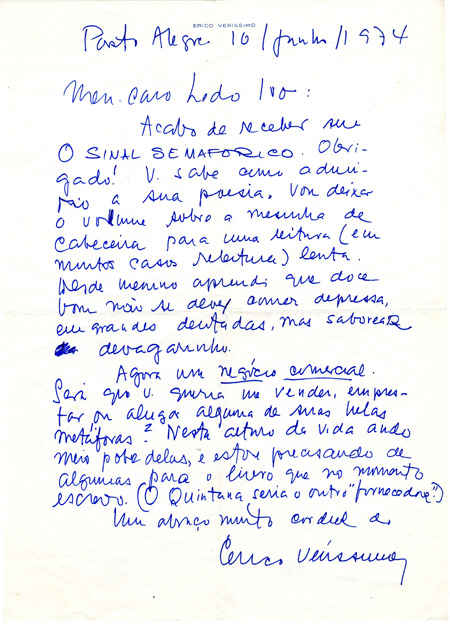 ERICO VERISSIMO
Porto Alegre 10/junho/1974
Meu caro Ledo Ivo:
Acabo de receber seu
O SINAL SEMAFORICO. Obri-
gado! V. sabe como admi-
ro a sua poesia. Vou deixar
o volume sobre a mesinha de
cabeceira para uma leitura (em
muitos casos releitura) lenta.
Desde menino aprendi que doce
bom não se deve comer depressa,
em grandes dentadas, mas saborear
devagarinho.
Agora um negócio comercial.
Será que v. queria me vender, empres-
tar, ou alugar alguma de suas belas
metáforas? Nesta altura da vida ando
meio pobre delas, e estou precisando de
algumas para o livro que no momento
escrevo. (O Quintana seria o outro "fornecedor".)
Um abraço muito cordial do
Erico Verissimo